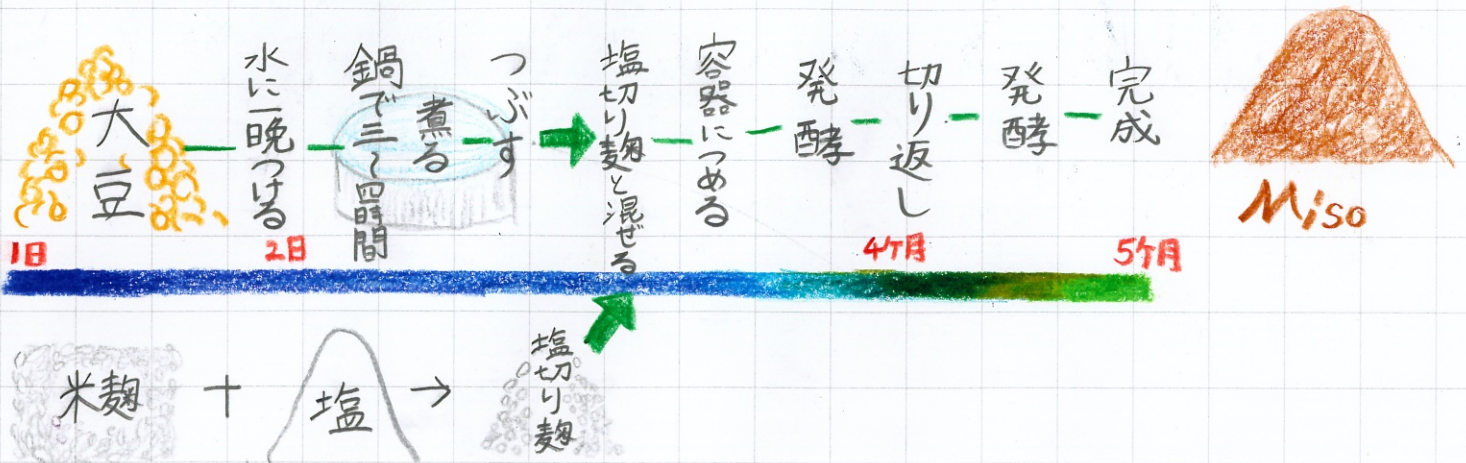 大豆
水に一晩つける
鍋で三〜四時間
煮る
つぶす
塩切り麹と混ぜる
容器につめる
発酵
切り返し
発酵
完成
Miso
1日
2日
4ヶ月
5ヶ月
米麹
+
塩
→
塩切り麹